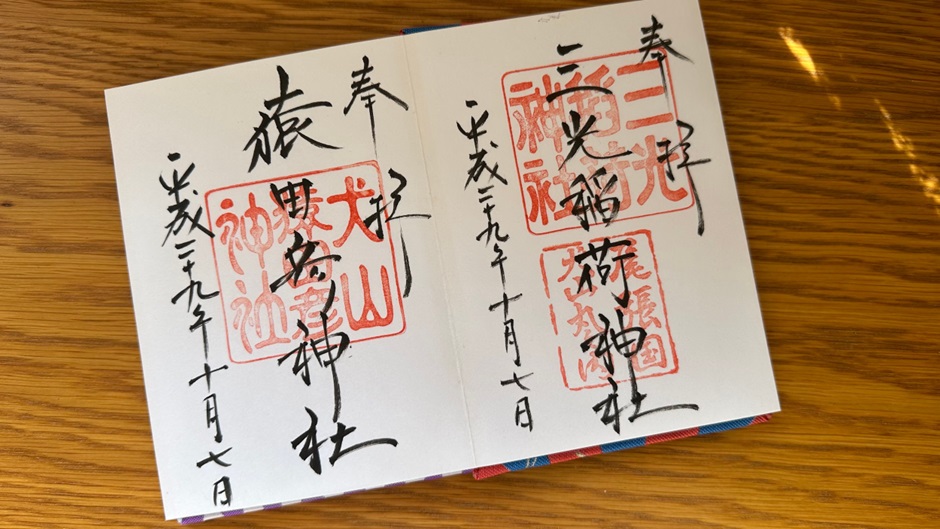 奉拝
三光稲荷神社
平成二十九年十月七日
三光
稲荷
神社
尾張国
奉拝
猿田彦神社
平成二十九年十月七日
犬山
猿田彦
神社